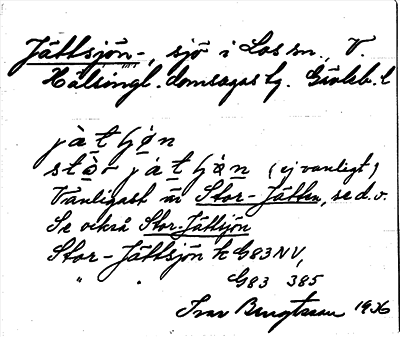 Jättsjön-, sjö i Los sn, V.
Hälsingl. domsagas tg. Gävleb. l
jàtʃǿn
stòr játʃòn (ej vanligt)
Vanligast är Stor-Jätten, se d.o.
Se också Stor-Jättsjön
Stor-Jättsjön k G83NV,
" " G83 385
Ivar Bengtsson 1936